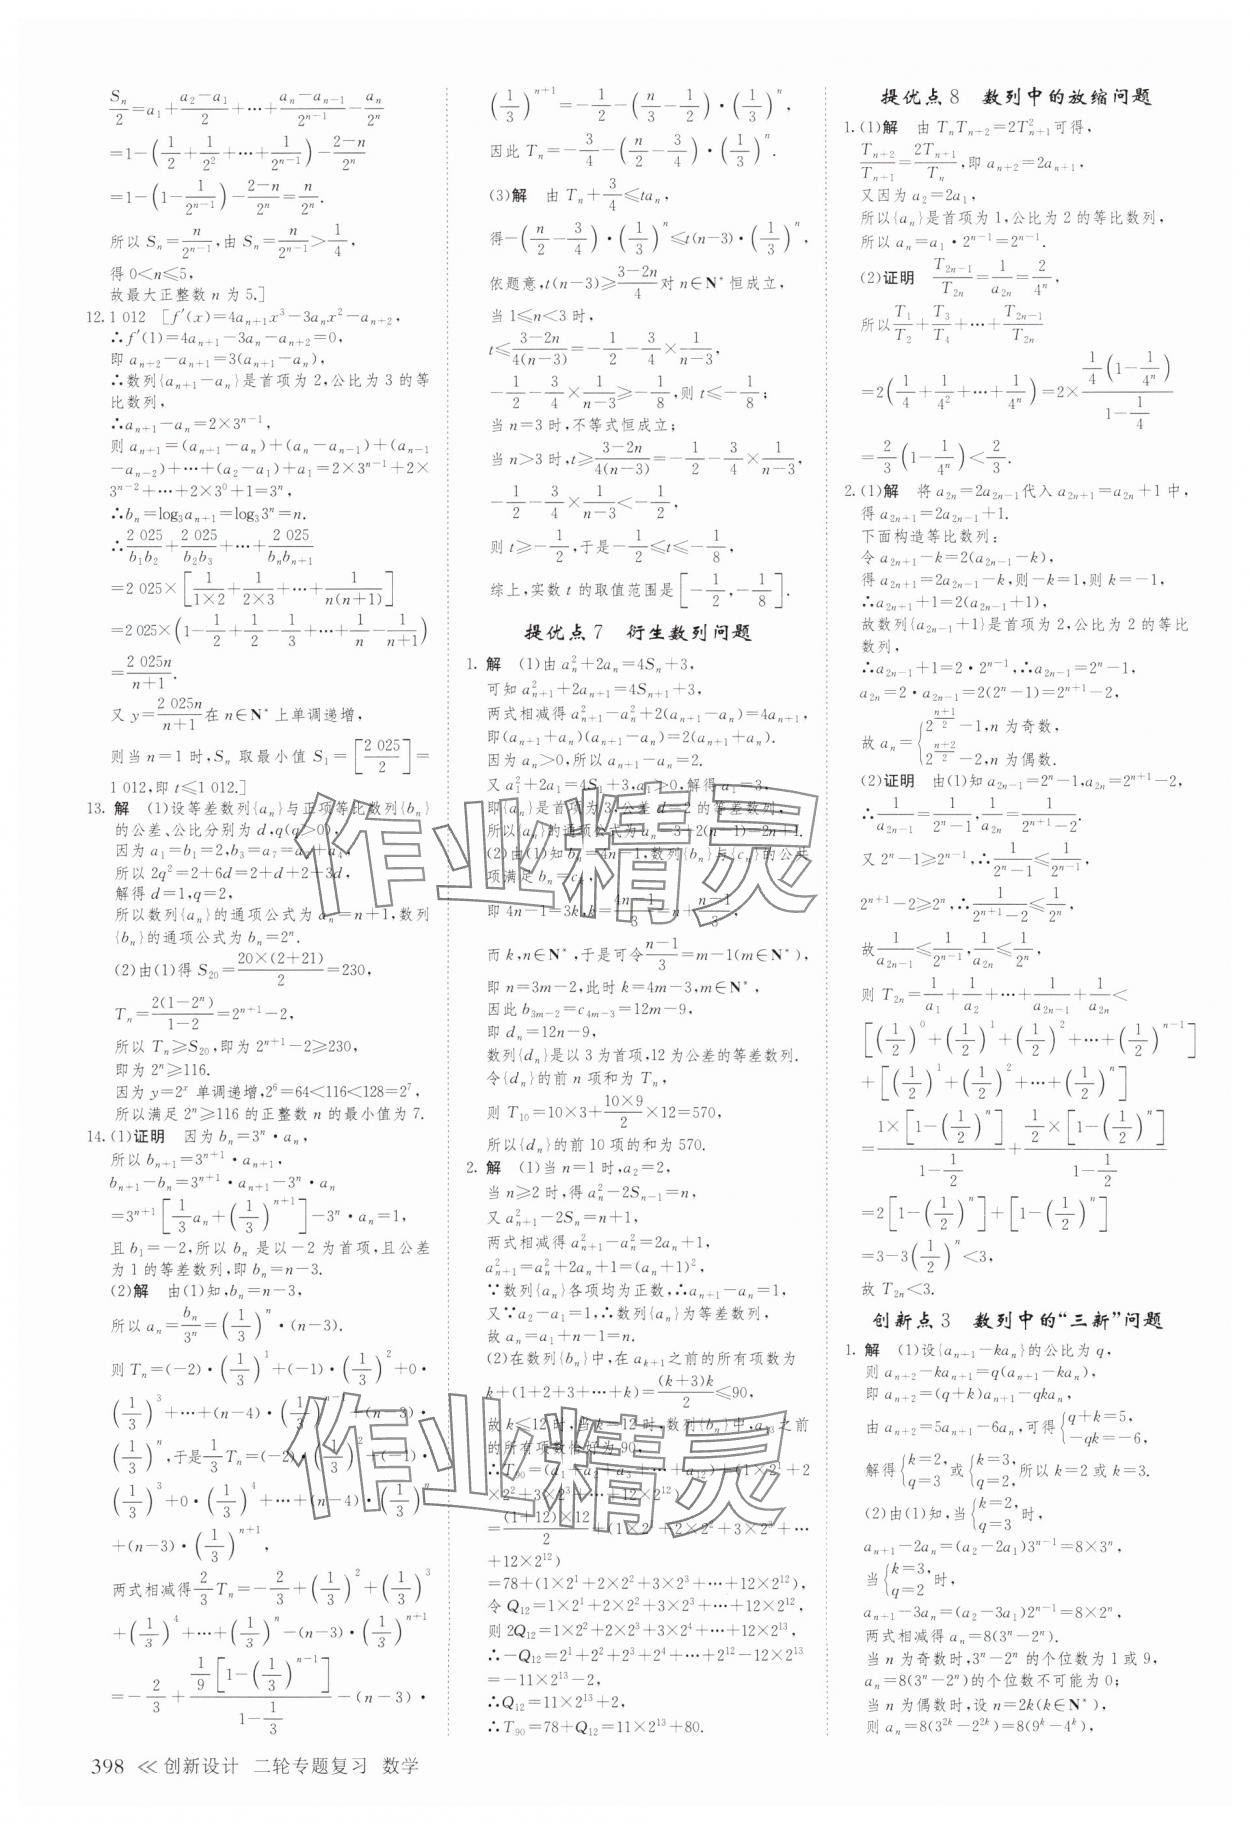 S_n/2=a_1+(a_2-a_1)/2+…+(a_n-a_{n-1})/2^{n-1}-a_n/2^n
=1-(1/2+1/2^2+…+1/2^{n-1})-(2-n)/2^n
=1-(1-1/2^{n-1})-(2-n)/2^n=n/2^n.
所以 S_n=n/2^{n-1},由 S_n=n/2^{n-1}>1/4,
得 0<n≤5,
故最大正整数 n 为 5.]
12.1 012 [f′(x)=4a_{n+1}x^3-3a_nx^2-a_{n+2},
∴f′(1)=4a_{n+1}-3a_n-a_{n+2}=0,
即 a_{n+2}-a_{n+1}=3(a_{n+1}-a_n),
∴数列{a_{n+1}-a_n}是首项为 2,公比为 3 的等
比数列,
∴a_{n+1}-a_n=2×3^{n-1},
则 a_{n+1}=(a_{n+1}-a_n)+(a_n-a_{n-1})+(a_{n-1}
-a_{n-2})+…+(a_2-a_1)+a_1=2×3^{n-1}+2×
3^{n-2}+…+2×3^0+1=3^n,
∴b_n=log_3a_{n+1}=log_33^n=n.
∴2 025/(b_1b_2)+2 025/(b_2b_3)+…+2 025/(b_nb_{n+1})
=2 025×[1/(1×2)+1/(2×3)+…+1/(n(n+1))]
=2 025×(1-1/2+1/2-1/3+…+1/n-1/(n+1))
=2 025n/(n+1).
又 y=2 025n/(n+1)在 n∈N* 上单调递增,
则当 n=1 时,S_n 取最小值 S_1=[2 025/2]=
1 012,即 t≤1 012.]
13. 解 (1)设等差数列{a_n}与正项等比数列{b_n}
的公差、公比分别为 d,q(q>0),
因为 a_1=b_1=2,b_3=a_7=a_3+a_4,
所以 2q^2=2+6d=2+d+2+3d,
解得 d=1,q=2,
所以数列{a_n}的通项公式为 a_n=n+1,数列
{b_n}的通项公式为 b_n=2^n.
(2)由(1)得 S_20=20×(2+21)/2=230,
T_n=2(1-2^n)/(1-2)=2^{n+1}-2,
所以 T_n≥S_20,即为 2^{n+1}-2≥230,
即为 2^n≥116.
因为 y=2^x 单调递增,2^6=64<116<128=2^7,
所以满足 2^n≥116 的正整数 n 的最小值为 7.
14. (1)证明 因为 b_n=3^n·a_n,
所以 b_{n+1}=3^{n+1}·a_{n+1},
b_{n+1}-b_n=3^{n+1}·a_{n+1}-3^n·a_n
=3^{n+1}[1/3a_n+(1/3)^{n+1}]-3^n·a_n=1,
且 b_1=-2,所以 b_n 是以-2 为首项,且公差
为 1 的等差数列,即 b_n=n-3.
(2)解 由(1)知,b_n=n-3,
所以 a_n=b_n/3^n=(1/3)^n·(n-3).
则 T_n=(-2)·(1/3)^1+(-1)·(1/3)^2+0·
(1/3)^3+…+(n-4)·(1/3)^{n-1}+(n-3)·
(1/3)^n,于是1/3T_n=(-2)·(1/3)^2+(-1)·
(1/3)^3+0·(1/3)^4+…+(n-4)·(1/3)^n
+(n-3)·(1/3)^{n+1},
两式相减得2/3T_n=-2/3+(1/3)^2+(1/3)^3
+(1/3)^4+…+(1/3)^n-(n-3)·(1/3)^{n+1}
=-2/3+1/9[1-(1/3)^{n-1}]/(1-1/3)-(n-3)·
(1/3)^{n+1}=-1/2-(n/3-1/2)·(1/3)^n,
因此 T_n=-3/4-(n/2-3/4)·(1/3)^n.
(3)解 由 T_n+3/4≤ta_n,
得-(n/2-3/4)·(1/3)^n≤t(n-3)·(1/3)^n,
依题意,t(n-3)≥(3-2n)/4对 n∈N* 恒成立,
当 1≤n<3 时,
t≤(3-2n)/(4(n-3))=-1/2-3/4×1/(n-3),
-1/2-3/4×1/(n-3)≥-1/8,则 t≤-1/8;
当 n=3 时,不等式恒成立;
当 n>3 时,t≥(3-2n)/(4(n-3))=-1/2-3/4×1/(n-3),
-1/2-3/4×1/(n-3)<-1/2,
则 t≥-1/2,于是-1/2≤t≤-1/8,
综上,实数 t 的取值范围是[-1/2,-1/8].
提优点 7 衍生数列问题
1. 解 (1)由 a_n^2+2a_n=4S_n+3,
可知 a_{n+1}^2+2a_{n+1}=4S_{n+1}+3,
两式相减得 a_{n+1}^2-a_n^2+2(a_{n+1}-a_n)=4a_{n+1},
即(a_{n+1}+a_n)(a_{n+1}-a_n)=2(a_{n+1}+a_n).
因为 a_n>0,所以 a_{n+1}-a_n=2.
又 a_1^2+2a_1=4S_1+3,a_1>0,解得 a_1=3,
即{a_n}是首项为 3,公差 d=2 的等差数列,
所以{a_n}的通项公式为 a_n=3+2(n-1)=2n+1.
(2)由(1)知 b_n=4n-1,数列{b_n}与{c_n}的公共
项满足 b_n=c_k,
即 4n-1=3k,k=(4n-1)/3=n+(n-1)/3,
而 k,n∈N*,于是可令(n-1)/3=m-1(m∈N*),
即 n=3m-2,此时 k=4m-3,m∈N*,
因此 b_{3m-2}=c_{4m-3}=12m-9,
即 d_n=12n-9,
数列{d_n}是以 3 为首项,12 为公差的等差数列.
令{d_n}的前 n 项和为 T_n,
则 T_10=10×3+10×9/2×12=570,
所以{d_n}的前 10 项的和为 570.
2. 解 (1)当 n=1 时,a_2=2,
当 n≥2 时,得 a_n^2-2S_{n-1}=n,
又 a_{n+1}^2-2S_n=n+1,
两式相减得 a_{n+1}^2-a_n^2=2a_n+1,
a_{n+1}^2=a_n^2+2a_n+1=(a_n+1)^2,
∵数列{a_n}各项均为正数,∴a_{n+1}-a_n=1,
又∵a_2-a_1=1,∴数列{a_n}为等差数列,
故 a_n=a_1+n-1=n.
(2)在数列{b_n}中,在 a_{k+1}之前的所有项数为
k+(1+2+3+…+k)=(k+3)k/2≤90,
故 k≤12 时,当 k=12 时,数列{b_n}中,a_13之前
的所有项数恰好为 90,
∴T_90=(a_1+a_2+a_3+…+a_12)+(1×2^1+2
×2^2+3×2^3+…+12×2^12)
=(1+12)×12/2+(1×2^1+2×2^2+3×2^3+…
+12×2^12)
=78+(1×2^1+2×2^2+3×2^3+…+12×2^12),
令 Q_12=1×2^1+2×2^2+3×2^3+…+12×2^12,
则 2Q_12=1×2^2+2×2^3+3×2^4+…+12×2^13,
∴-Q_12=2^1+2^2+2^3+2^4+…+2^12-12×2^13
=-11×2^13-2,
∴Q_12=11×2^13+2,
∴T_90=78+Q_12=11×2^13+80.
提优点 8 数列中的放缩问题
1. (1)解 由 T_nT_{n+2}=2T_{n+1}^2可得,
T_{n+2}/T_{n+1}=2T_{n+1}/T_n,即 a_{n+2}=2a_{n+1},
又因为 a_2=2a_1,
所以{a_n}是首项为 1,公比为 2 的等比数列,
所以 a_n=a_1·2^{n-1}=2^{n-1}.
(2)证明 T_{2n-1}/T_{2n}=1/a_{2n}=2/4^n,
所以T_1/T_2+T_3/T_4+…+T_{2n-1}/T_{2n}
=2(1/4+1/4^2+…+1/4^n)=2×1/4(1-1/4^n)/(1-1/4)
=2/3(1-1/4^n)<2/3.
2. (1)解 将 a_{2n}=2a_{2n-1}代入 a_{2n+1}=a_{2n}+1 中,
得 a_{2n+1}=2a_{2n-1}+1.
下面构造等比数列:
令 a_{2n+1}-k=2(a_{2n-1}-k),
得 a_{2n+1}=2a_{2n-1}-k,则-k=1,则 k=-1,
∴a_{2n+1}+1=2(a_{2n-1}+1),
故数列{a_{2n-1}+1}是首项为 2,公比为 2 的等比
数列,
∴a_{2n-1}+1=2·2^{n-1},∴a_{2n-1}=2^n-1,
a_{2n}=2·a_{2n-1}=2(2^n-1)=2^{n+1}-2,
故 a_n={2^{(n+1)/2}-1,n 为奇数, 2^{(n+2)/2}-2,n 为偶数.
(2)证明 由(1)知 a_{2n-1}=2^n-1,a_{2n}=2^{n+1}-2,
∴1/a_{2n-1}=1/(2^n-1),1/a_{2n}=1/(2^{n+1}-2).
又 2^n-1≥2^{n-1},∴1/(2^n-1)≤1/2^{n-1},
2^{n+1}-2≥2^n,∴1/(2^{n+1}-2)≤1/2^n,
故1/a_{2n-1}≤1/2^{n-1},1/a_{2n}≤1/2^n,
则 T_{2n}=1/a_1+1/a_2+…+1/a_{2n-1}+1/a_{2n}<
[(1/2)^0+(1/2)^1+(1/2)^2+…+(1/2)^{n-1}]
+[(1/2)^1+(1/2)^2+…+(1/2)^n]
=1×[1-(1/2)^n]/(1-1/2)+1/2×[1-(1/2)^n]/(1-1/2)
=2[1-(1/2)^n]+[1-(1/2)^n]
=3-3(1/2)^n<3,
故 T_{2n}<3.
创新点 3 数列中的“三新”问题
1. 解 (1)设{a_{n+1}-ka_n}的公比为 q,
则 a_{n+2}-ka_{n+1}=q(a_{n+1}-ka_n),
即 a_{n+2}=(q+k)a_{n+1}-qka_n,
由 a_{n+2}=5a_{n+1}-6a_n,可得{q+k=5, -qk=-6,
解得{k=2, q=3或{k=3, q=2,所以 k=2 或 k=3.
(2)由(1)知,当{k=2, q=3时,
a_{n+1}-2a_n=(a_2-2a_1)3^{n-1}=8×3^n,
当{k=3, q=2时,
a_{n+1}-3a_n=(a_2-3a_1)2^{n-1}=8×2^n,
两式相减得 a_n=8(3^n-2^n).
当 n 为奇数时,3^n-2^n 的个位数为 1 或 9,
a_n=8(3^n-2^n)的个位数不可能为 0;
当 n 为偶数时,设 n=2k(k∈N*),
则 a_n=8(3^{2k}-2^{2k})=8(9^k-4^k),
398 ≪ 创新设计 二轮专题复习 数学
作业精灵
作业精灵